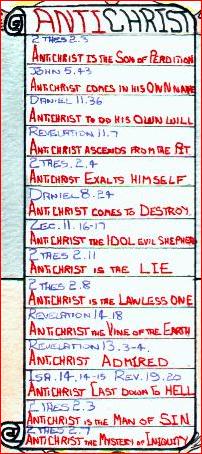 ANTICHRIST
2 THES 2.3
ANTICHRIST IS THE SON OF PERDITION
JOHN 5.43
ANTICHRIST COMES IN HIS OWN NAME
DANIEL 11.36
ANTICHRIST TO DO HIS OWN WILL
REVELATION 11.7
ANTICHRIST ASCENDS FROM THE PIT
2 THES. 2.4
ANTICHRIST EXALTS HIMSELF
DANIEL 8.24
ANTICHRIST COMES TO DESTROY.
ZEC. 11.16-17
ANTICHRIST THE IDOL EVIL SHEPHERD
2 THES 2.11
ANTICHRIST IS THE LIE
2 THES 2.8
ANTICHRIST IS THE LAWLESS ONE
REVELATION 14-18
ANTICHRIST THE VINE OF THE EARTH
REVELATION 13.3-4.
ANTICHRIST ADMIRED
ISA. 14.14-15 REV. 19.20
ANTICHRIST CAST DOWN TO HELL
2 THES 2.3
ANTICHRIST IS THE MAN OF SIN
2 THES 2.7
ANTICHRIST THE MYSTERY OF INIQUITY